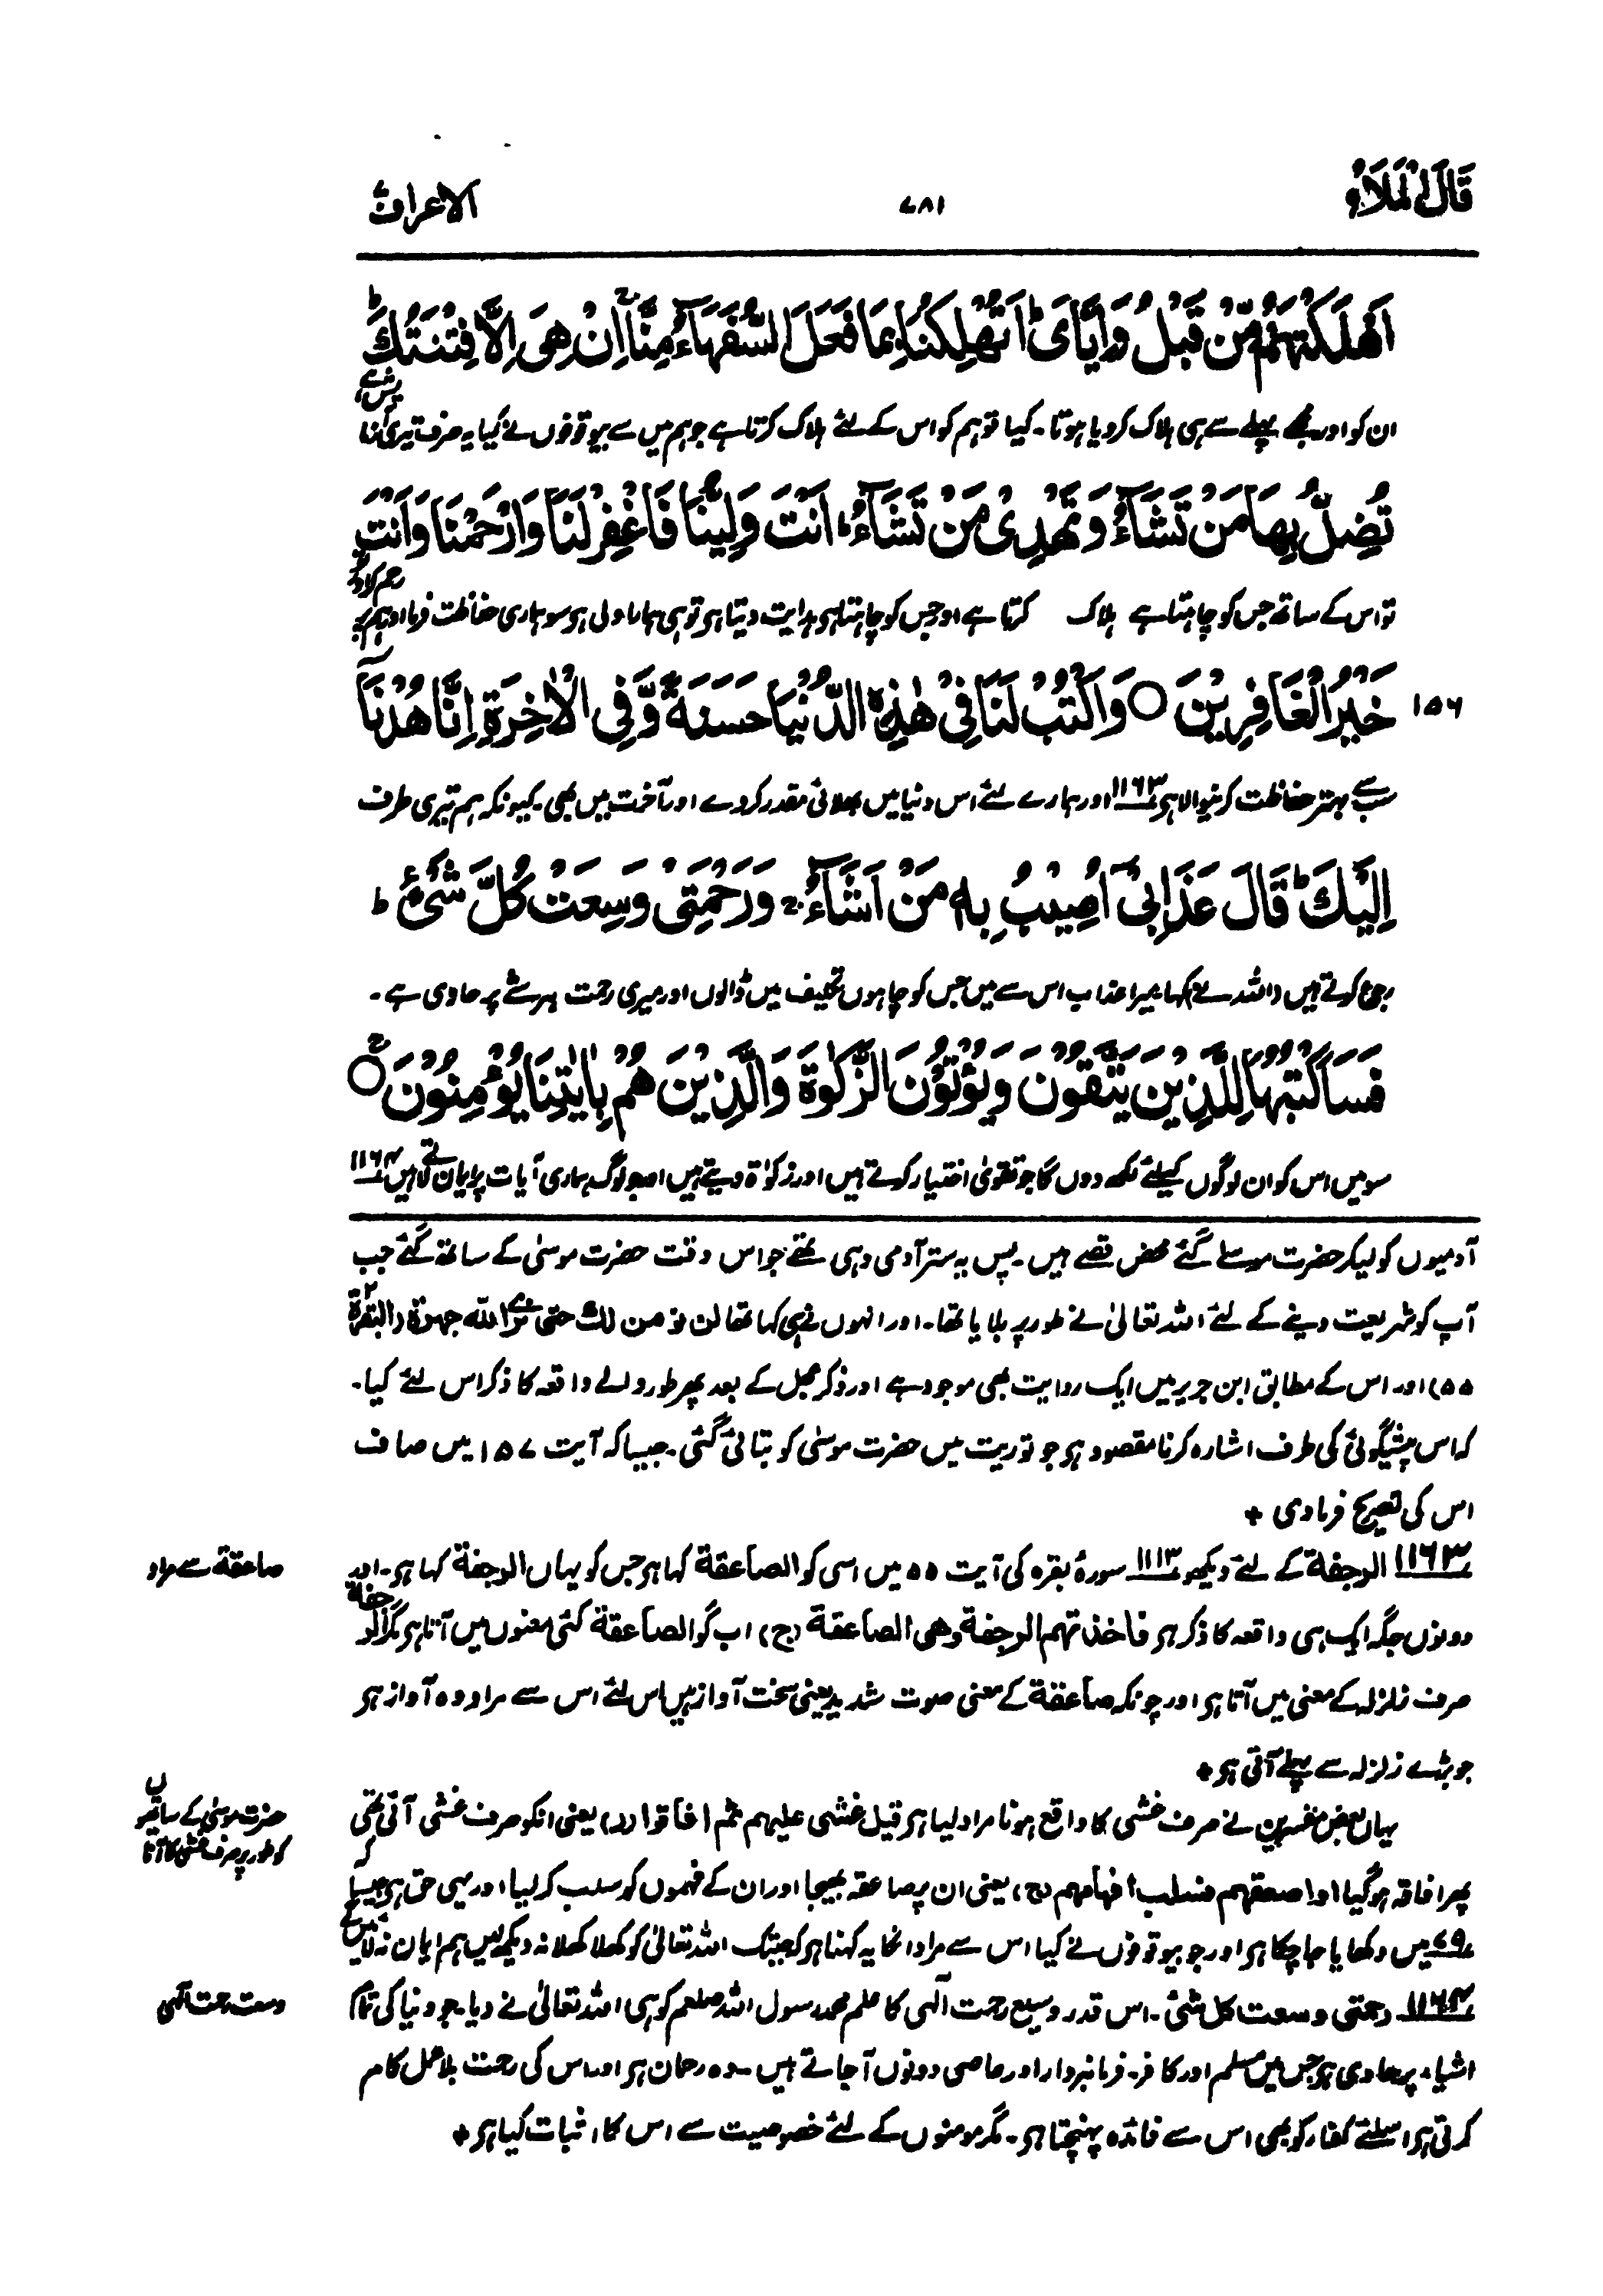 قَالَ الْمَلَأُ
۷۸۱
الاعراف ۷
اَهْلَكْتَهُمْ مِّنْ قَبْلُ وَاِيَّايَ ؕ اَتُهْلِكُنَا بِمَا فَعَلَ السُّفَهَآءُ مِنَّا ۚ اِنْ هِيَ اِلَّا فِتْنَتُكَ ؕ
ان کو اور مجھے پہلے سے ہی ہلاک کر دیا ہوتا۔ کیا تو ہم کو اس کے لئے ہلاک کرتا ہے جو ہم میں سے بیوقوفوں نے کیا یہ صرف تیری آزمائش ہے
تُضِلُّ بِهَا مَنْ تَشَآءُ وَتَهْدِيْ مَنْ تَشَآءُ ؕ اَنْتَ وَلِيُّنَا فَاغْفِرْ لَنَا وَارْحَمْنَا وَاَنْتَ
تو اس کے ساتھ جس کو چاہتا ہے ہلاک کرتا ہے اور جس کو چاہتا ہی ہدایت دیتا ہر تو ہی ہمارا ولی ہر سو ہماری حفاظت فرما اور ہم پر رحم کر اور تو
۱۵۶
خَيْرُ الْغَافِرِيْنَ ○ وَاكْتُبْ لَنَا فِيْ هٰذِهِ الدُّنْيَا حَسَنَةً وَّفِي الْاٰخِرَةِ اِنَّا هُدْنَآ
سب سے بہتر حفاظت کرنیوالا ہر ۱۱۶۳ اور ہمارے لئے اس دنیا میں بھلائی مقدر کر دے اور آخرت میں بھی۔ کیونکہ ہم تیری طرف
اِلَيْكَ ؕ قَالَ عَذَابِيْٓ اُصِيْبُ بِهٖ مَنْ اَشَآءُ ۚ وَرَحْمَتِيْ وَسِعَتْ كُلَّ شَيْءٍ ؕ
رجوع کرتے ہیں (اللہ نے) کہا میرا عذاب اس سے میں جس کو چاہوں تکلیف میں ڈالوں اور میری رحمت ہر شے پر حاوی ہے۔
فَسَاَكْتُبُهَا لِلَّذِيْنَ يَتَّقُوْنَ وَيُؤْتُوْنَ الزَّكٰوةَ وَالَّذِيْنَ هُمْ بِاٰيٰتِنَا يُؤْمِنُوْنَ ○
سو میں اس کو ان لوگوں کیلئے لکھ دوں گا جو تقویٰ اختیار کرتے ہیں اور زکوٰۃ دیتے ہیں اور جو لوگ ہماری آیات پر ایمان لاتے ہیں ۱۱۶۴
آدمیوں کو لیکر حضرت موسٰے گئے محض قصے ہیں۔ پس یہ ستر آدمی وہی تھے جو اس وقت حضرت موسیٰ کے ساتھ گئے جب
آپ کو شریعت دینے کے لئے اللہ تعالیٰ نے طور پر بلایا تھا۔ اور انہوں نے ہی کہا تھا لن نؤمن لك حتى نرى الله جهرة (البقرة ۲:
۵۵) اور اس کے مطابق ابن جریر میں ایک روایت بھی موجود ہے اور ذکر عجل کے بعد پھر طور والے واقعہ کا ذکر اس لئے کیا۔
کہ اس پیشگوئی کی طرف اشارہ کرنا مقصود ہر جو توریت میں حضرت موسیٰ کو بتائی گئی۔ جیسا کہ آیت ۱۵۷ میں صاف
اس کی تصریح فرما دی +
۱۱۶۳ الرجفة کے لئے دیکھو ۱۱۱۳ سورۂ بقرہ کی آیت ۵۵ میں اسی کو الصاعقة کہا ہر جس کو یہاں الرجفة کہا ہر۔ اور
صاعقة سے مراد
دونوں جگہ ایک ہی واقعہ کا ذکر ہر فاخذتهم الرجفة وهى الصاعقة (ج) اب گو الصاعقة کئی معنوں میں آتا ہر مگر الرجفة
صرف زلزلہ کے معنی میں آتا ہر اور چونکہ صاعقة کے معنی صوت شدید یعنی سخت آواز ہیں اس لئے اس سے مراد وہ آواز ہر
جو بڑے زلزلہ سے پہلے آتی ہر +
یہاں بعض مفسرین نے صرف غشی کا واقع ہونا مراد لیا ہر قیل غشی علیهم ثم افاقوا (ر) یعنی انکو صرف غشی آئی تھی
حضرت موسیٰ کے ساتھیوں
کو طور پر صرف غشی کا آنا
پھر افاقہ ہو گیا اواصعقهم فسلب افهامهم (ج) یعنی ان پر صاعقہ بھیجا اور ان کے فہموں کو سلب کر لیا اور یہی حق ہر جیسا کہ
۷۹ میں دکھایا جا چکا ہر اور جو بیوقوفوں نے کیا اس سے مراد انکا یہ کہنا ہر کہ جبتک اللہ تعالیٰ کو کھلا کھلا نہ دیکھ لیں ہم ایمان نہ لائیں گے
۱۱۶۴ رحمتی وسعت كل شئ۔ اس قدر وسیع رحمت الٰہی کا علم محمد رسول اللہ صلعم کو ہی اللہ تعالیٰ نے دیا۔ جو دنیا کی تمام
وسعت رحمت الٰہی
اشیاء پر حاوی ہر جس میں مسلم اور کافر۔ فرمانبردار اور عاصی دونوں آ جاتے ہیں۔ وہ رحمان ہر اور اس کی رحمت بلا عمل کام
کرتی ہر اسلئے کفار کو بھی اس سے فائدہ پہنچتا ہر۔ مگر مومنوں کے لئے خصوصیت سے اس کا اثبات کیا ہر +